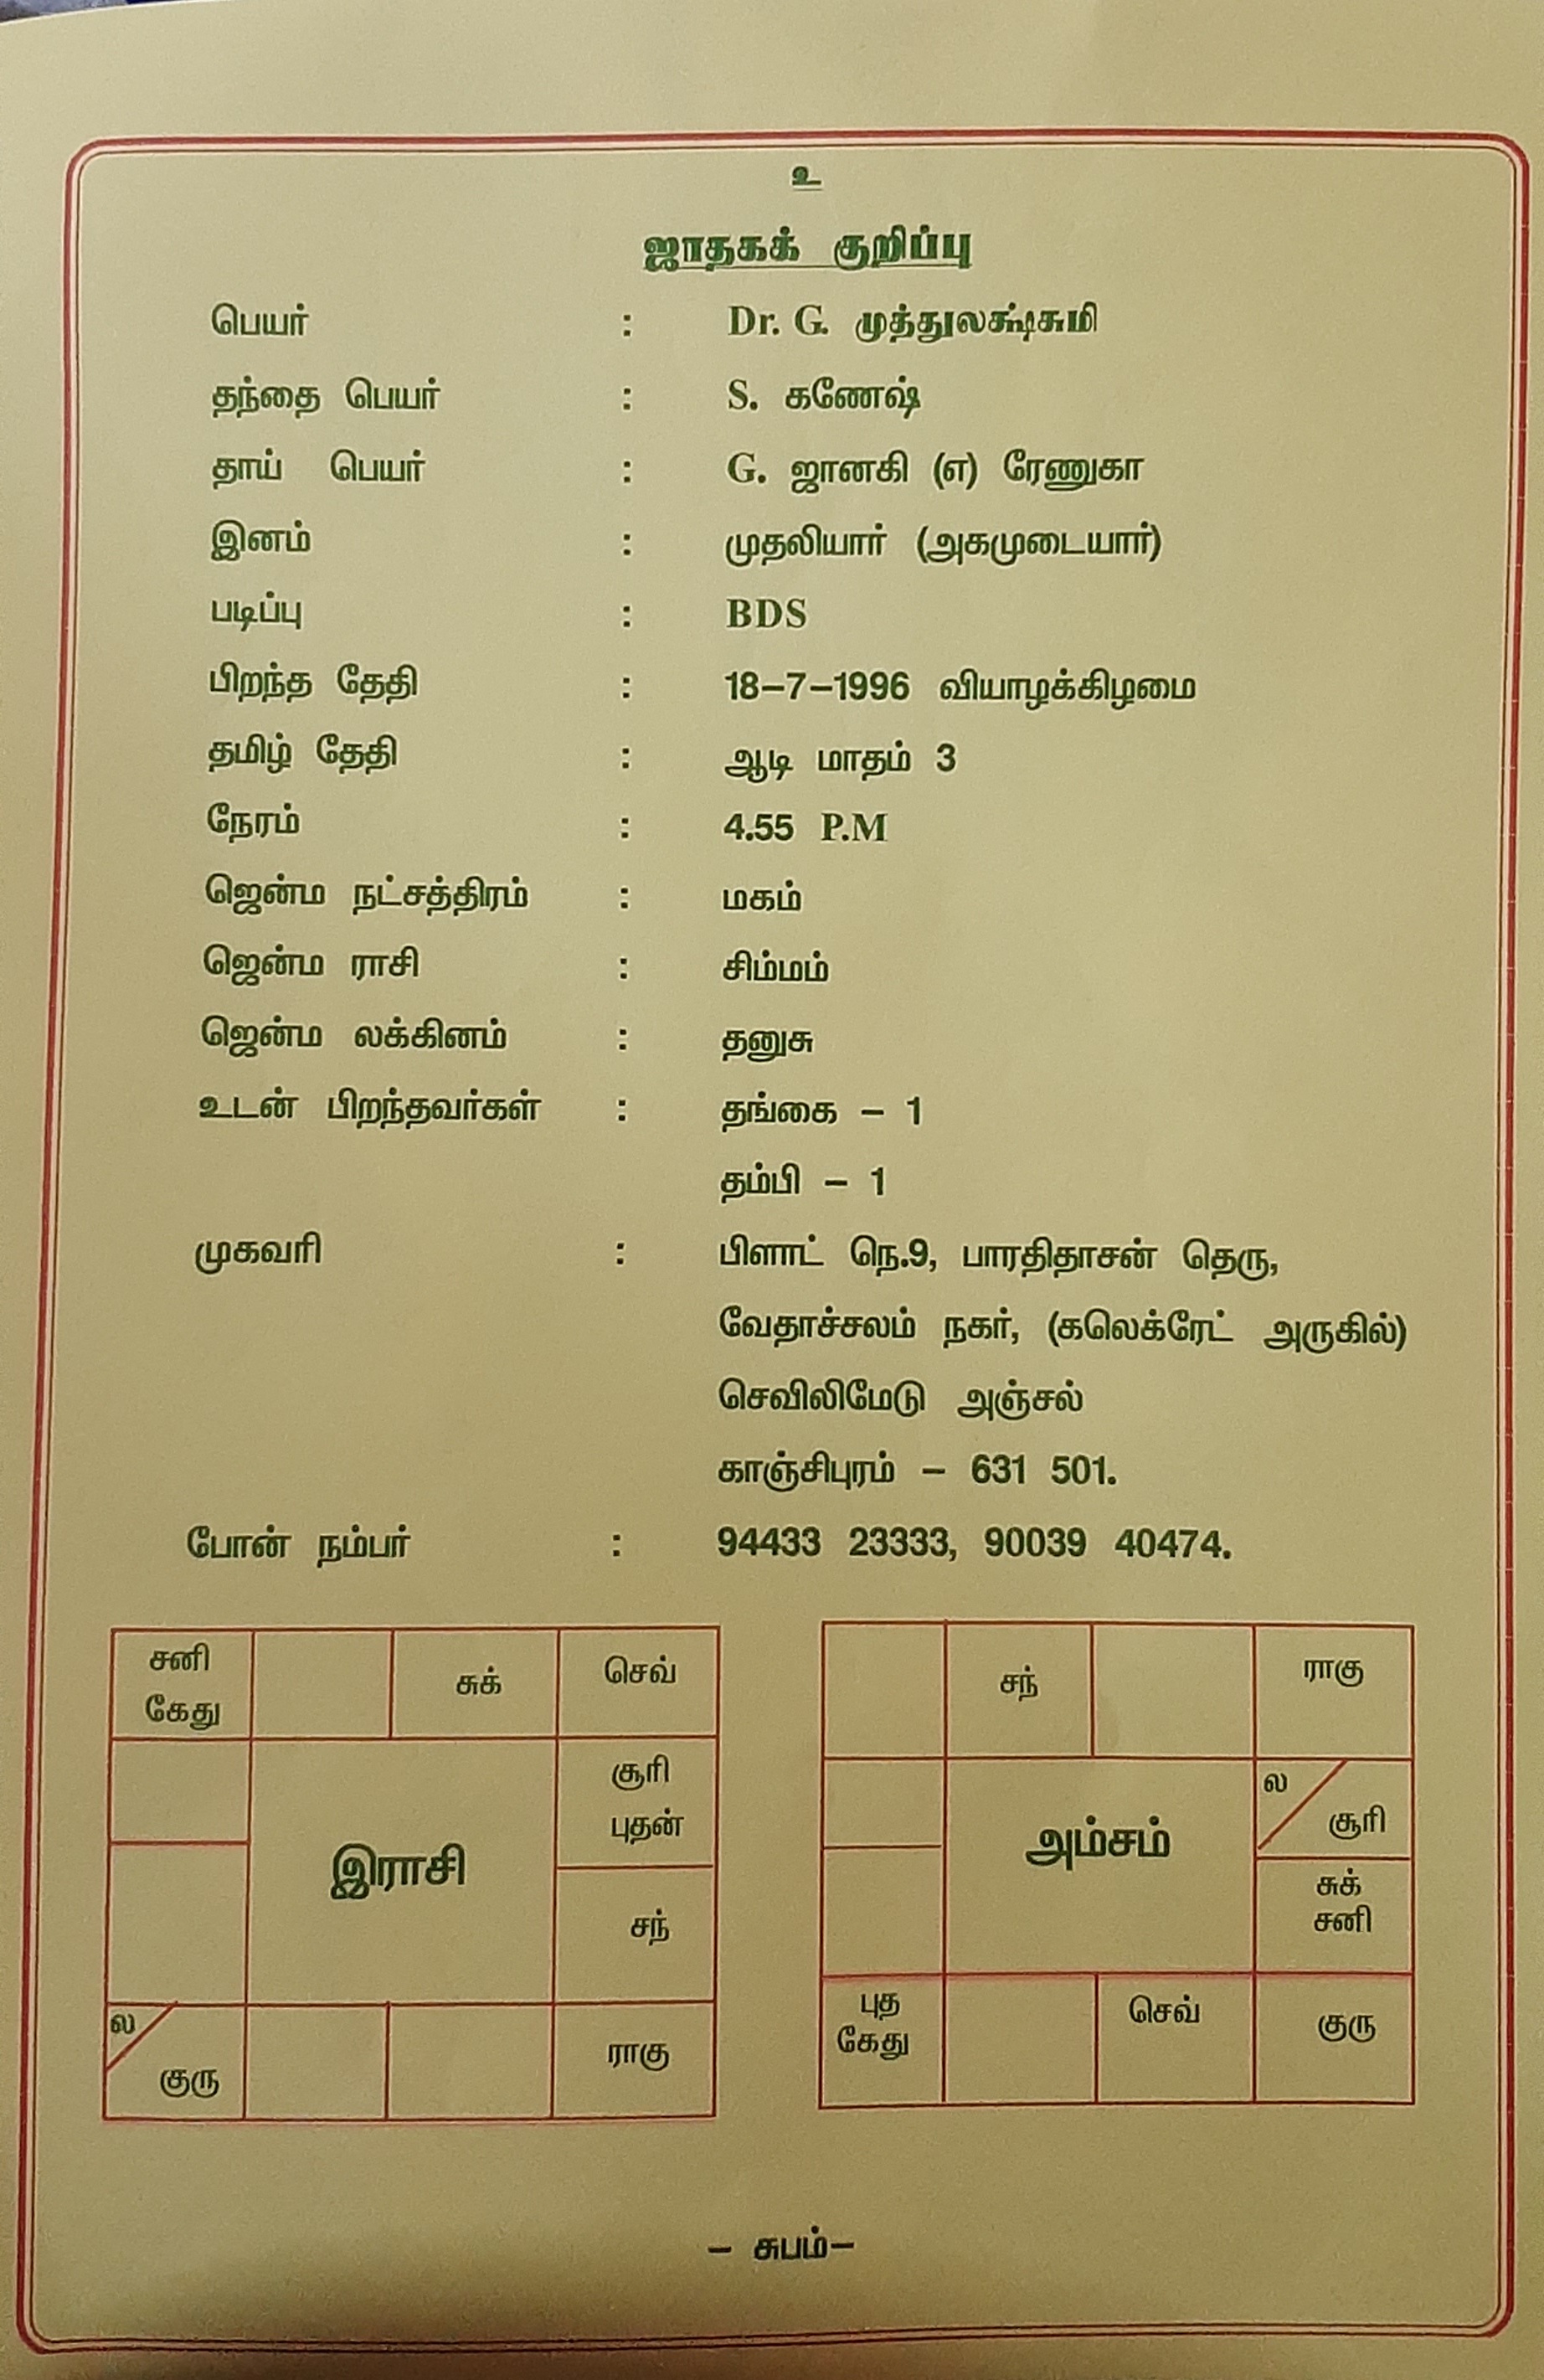 உ
ஜாதகக் குறிப்பு
பெயர் : Dr. G. முத்துலக்ஷ்சுமி
தந்தை பெயர் : S. கணேஷ்
தாய் பெயர் : G. ஜானகி (எ) ரேணுகா
இனம் : முதலியார் (அகமுடையார்)
படிப்பு : BDS
பிறந்த தேதி : 18-7-1996 வியாழக்கிழமை
தமிழ் தேதி : ஆடி மாதம் 3
நேரம் : 4.55 P.M
ஜென்ம நட்சத்திரம் : மகம்
ஜென்ம ராசி : சிம்மம்
ஜென்ம லக்கினம் : தனுசு
உடன் பிறந்தவர்கள் : தங்கை - 1
தம்பி - 1
முகவரி : பிளாட் நெ.9, பாரதிதாசன் தெரு,
வேதாச்சலம் நகர், (கலெக்ரேட் அருகில்)
செவிலிமேடு அஞ்சல்
காஞ்சிபுரம் - 631 501.
போன் நம்பர் : 94433 23333, 90039 40474.
சனி
கேது
சுக்
செவ்
சூரி
புதன்
இராசி
சந்
ல
குரு
ராகு
சந்
ராகு
ல
சூரி
அம்சம்
சுக்
சனி
புத
கேது
செவ்
குரு
- சுபம்-